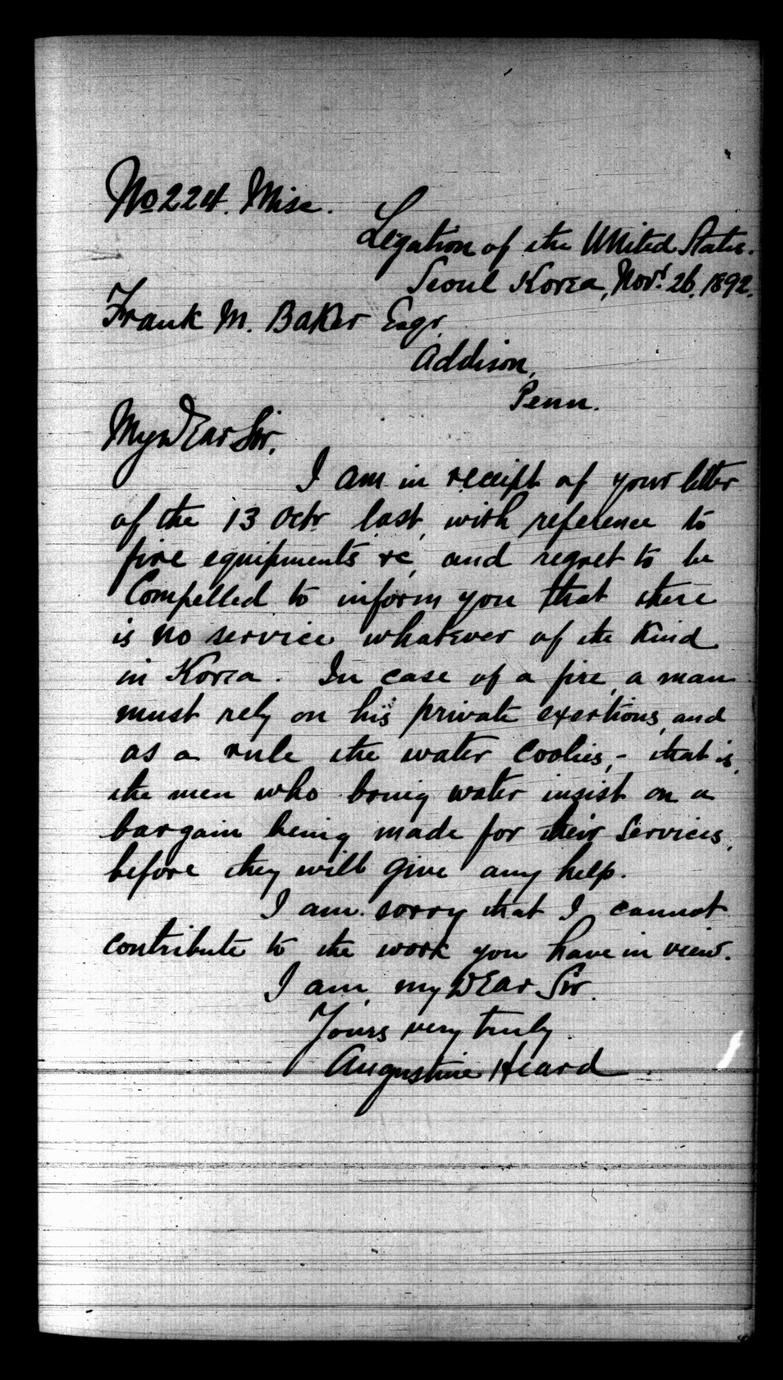 No 224. Misc.
Legation of the United States.
Seoul Korea, Novr. 26, 1892.
Frank M. Baker Esqr.
Addison,
Penn.
My dear Sir,
I am in receipt of your letter
of the 13 Octr last, with reference to
fire equipments &c, and regret to be
Compelled to inform you that there
is no service whatever of the kind
in Korea. In case of a fire, a man
must rely on his private exertions, and
as a rule the water Coolies, - that is,
the men who bring water insist on a
bargain being made for their services,
before they will give any help.
I am sorry that I cannot
contribute to the work you have in view.
I am, my Dear Sir.
Yours very truly
Augustine Heard